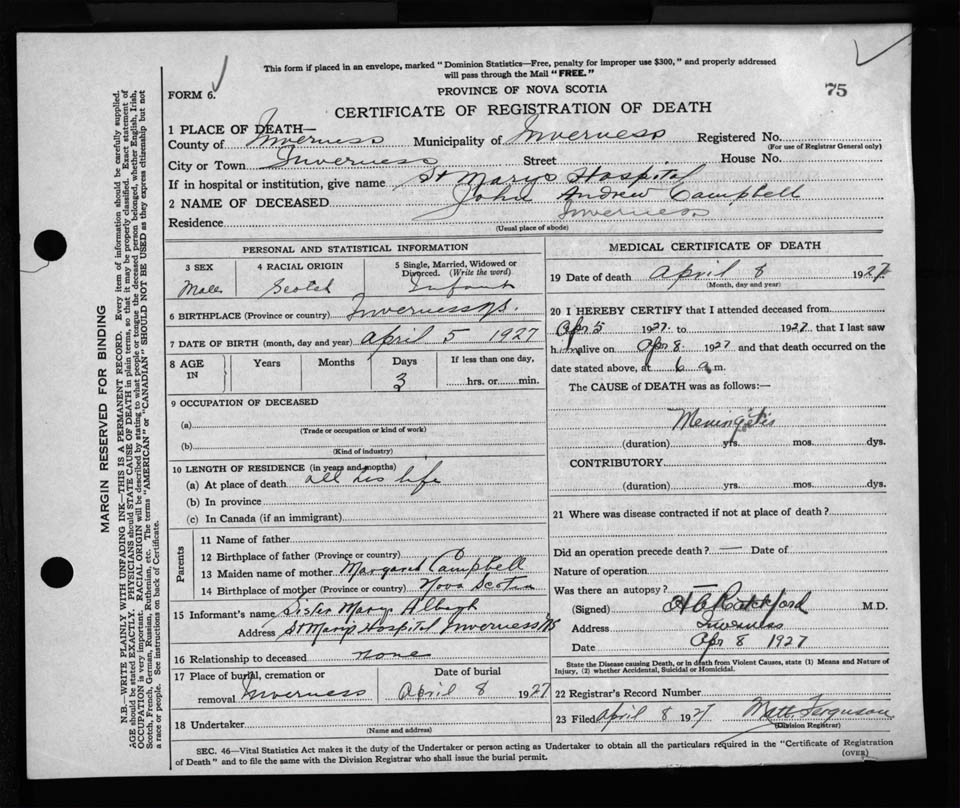 This form if placed in an envelope, marked "Dominion Statistics—Free, penalty for improper use $300," and properly addressed
will pass through the Mail "FREE."
FORM 6.
PROVINCE OF NOVA SCOTIA
75
CERTIFICATE OF REGISTRATION OF DEATH
1 PLACE OF DEATH—
County of Inverness Municipality of Inverness Registered No.
(For use of Registrar General only)
City or Town Inverness Street House No.
If in hospital or institution, give name St Marys Hospital
2 NAME OF DECEASED John Andrew Campbell
Residence Inverness
(Usual place of abode)
PERSONAL AND STATISTICAL INFORMATION
3 SEX 4 RACIAL ORIGIN 5 Single, Married, Widowed or
Divorced. (Write the word)
Male Scotch Infant
6 BIRTHPLACE (Province or country) Inverness N.S.
7 DATE OF BIRTH (month, day and year) April 5 1927
8 AGE Years Months Days If less than one day,
IN 3 hrs. or min.
9 OCCUPATION OF DECEASED
(a)
(Trade or occupation or kind of work)
(b)
(Kind of industry)
10 LENGTH OF RESIDENCE (in years and months)
(a) At place of death all his life
(b) In province
(c) In Canada (if an immigrant)
Parents
11 Name of father
12 Birthplace of father (Province or country)
13 Maiden name of mother Margaret Campbell
14 Birthplace of mother (Province or country) Nova Scotia
15 Informant's name Sister Mary
Address St Marys Hospital Inverness NS
16 Relationship to deceased none
17 Place of burial, cremation or Date of burial
removal Inverness April 8 1927
18 Undertaker
(Name and address)
MEDICAL CERTIFICATE OF DEATH
19 Date of death April 8 1927
(Month, day and year)
20 I HEREBY CERTIFY that I attended deceased from
Apr 5 1927 to 1927 that I last saw
h im alive on Apr 8 1927 and that death occurred on the
date stated above, at 6 a m.
The CAUSE of DEATH was as follows:—
Meningitis
(duration) yrs. mos. dys.
CONTRIBUTORY
(duration) yrs. mos. dys.
21 Where was disease contracted if not at place of death?
Did an operation precede death? — Date of
Nature of operation
Was there an autopsy? —
(Signed) M.D.
Address Inverness
Date Apr 8 1927
State the Disease causing Death, or in death from Violent Causes, state (1) Means and Nature
of Injury, (2) whether Accidental, Suicidal or Homicidal.
22 Registrar's Record Number
23 Filed April 8 1927 Matt. Ferguson
(Division Registrar)
SEC. 46—Vital Statistics Act makes it the duty of the Undertaker or person acting as Undertaker to obtain all the particulars required in the "Certificate of Registration
of Death" and to file the same with the Division Registrar who shall issue the burial permit.
(OVER)
MARGIN RESERVED FOR BINDING
N.B.—WRITE PLAINLY WITH UNFADING INK—THIS IS A PERMANENT RECORD. Every item of information should be carefully supplied.
AGE should be stated EXACTLY. PHYSICIANS should STATE CAUSE OF DEATH in plain terms, so that it may be properly classified. Exact statement of
OCCUPATION is very important. RACIAL ORIGIN will be described by stating to what people or tongue the deceased person belonged, whether English, Irish,
Scotch, French, German, Russian, Ruthenian, etc. The terms "AMERICAN" or "CANADIAN" SHOULD NOT BE USED as they express citizenship but not
a race or people. See instructions on back of Certificate.